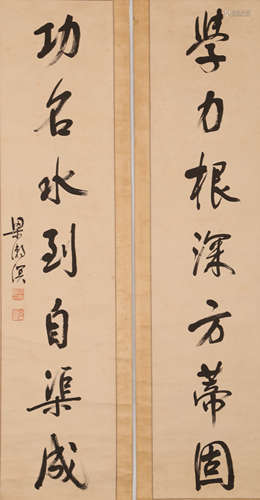 學力根深方蒂固
功名水到自渠成
梁漱溟